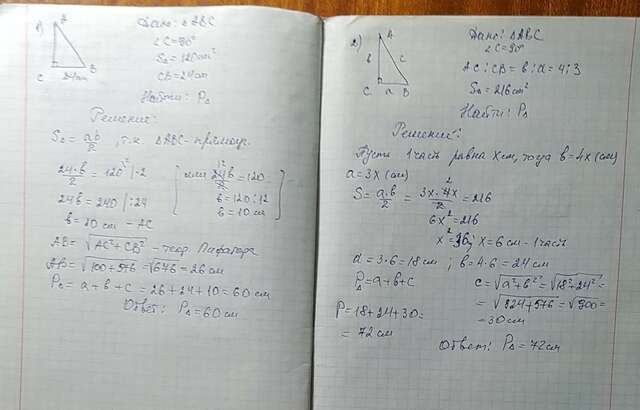 1) A
C 24см B
Дано: △ABC
∠C=90°
S△=120см²
CB=24см
Найти: P△
Решение:
S△=ab/2, т.к △ABC-прямоуг.
24·b/2=120 |·2 или 24b/2=120
24b=240 |:24 b=120:12
b=10см-AC b=10см
AB=√AC²+CB² - теор. Пифагора
AB=√100+576=√676=26см
P△=a+b+c=26+24+10=60см
Ответ: P△=60см
2) A
b c
C a B
Дано: △ABC
∠C=90°
AC:CB=b:a=4:3
S△=216см²
Найти: P△
Решение:
Пусть 1часть равна xсм, тогда b=4x(см)
a=3x(см)
S=a·b/2=3x·4x/2=216
6x²=216
x²=36; x=6см-1часть
a=3·6=18см; b=4·6=24см
P△=a+b+c c=√a²+b²=√18²+24²=
=√324+576=√900=
=30см
P=18+24+30=
=72см
Ответ: P△=72см